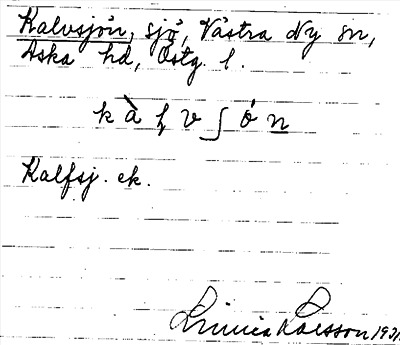 Kalvsjön, sjö, Västra Ny sn,
Aska hd, Östg. l.
k à ļ v ʃ ó n
Kalfsj. ek.
Linnea Larsson 1931